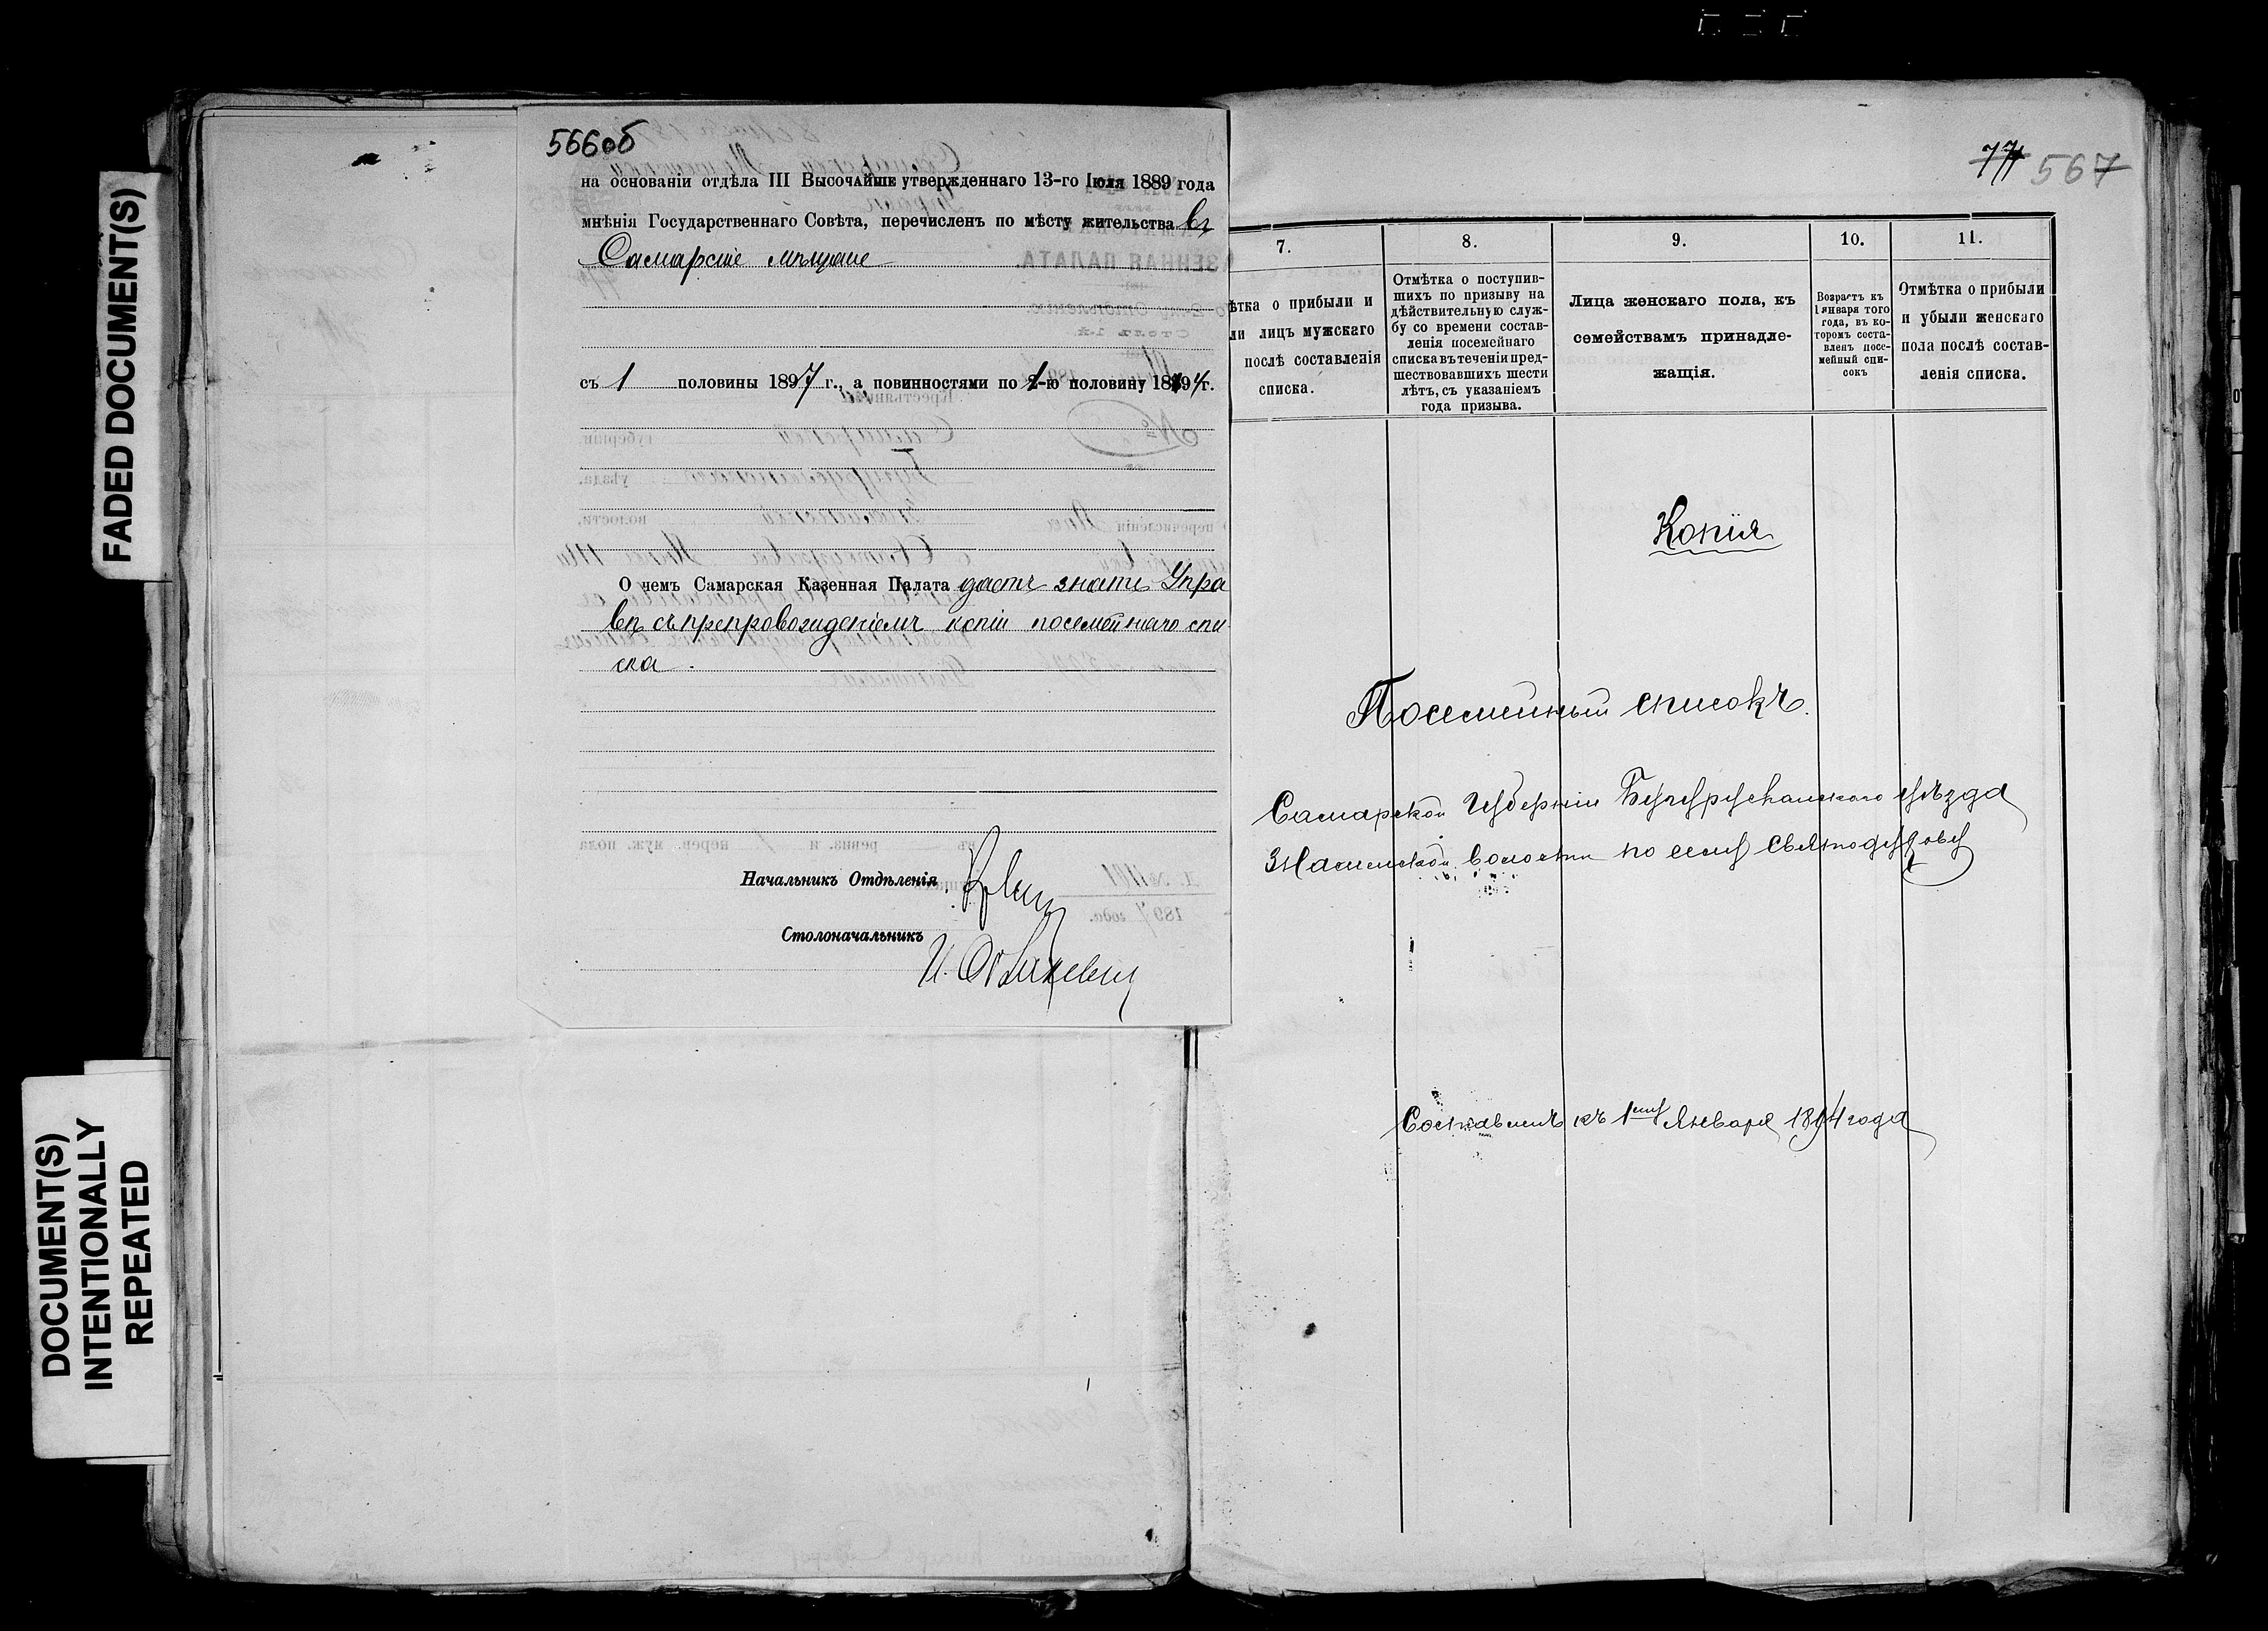 566об
на основаніи отдѣла III Высочайше утвержденнаго 13-го Іюля 1889 года
мнѣнія Государственнаго Совѣта, перечисленъ по мѣсту жительства въ
Самарскіе мѣщане
съ 1 половины 1897 г., а повинностями по 1-ю половину 1894 г.
О чемъ Самарская Казенная Палата даетъ знать Упра
вѣ съ препровожденіемъ копіи посемейнаго спи
ска.
Начальникъ Отдѣленія
Столоначальникъ
FADED DOCUMENT(S)
DOCUMENT(S)
INTENTIONALLY
REPEATED
77 567
7.
ѣтка о прибыли и
ли лицъ мужскаго
послѣ составленія
списка.
8.
Отмѣтка о поступив-
шихъ по призыву на
дѣйствительную служ-
бу со времени состав-
ленія посемейнаго
списка въ теченіи пред-
шествовавшихъ шести
лѣтъ, съ указаніемъ
года призыва.
9.
Лица женскаго пола, къ
семействамъ принадле-
жащія.
10.
Возрастъ къ
1 января того
года, въ ко-
торомъ соста-
вленъ посе-
мейный спи-
сокъ
11.
Отмѣтка о прибыли
и убыли женскаго
пола послѣ состав-
ленія списка.
Копія
Посемейный списокъ.
Самарской Губерніи Бугурусланскаго уѣзда
волости по селу Святодухову
Составленъ къ 1му Января 1894 года